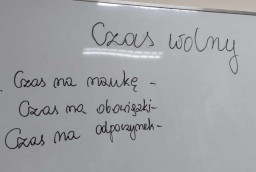 Czas wolny
. Czas na naukę -
Czas na obowiązki-
Czas na odpoczynek-